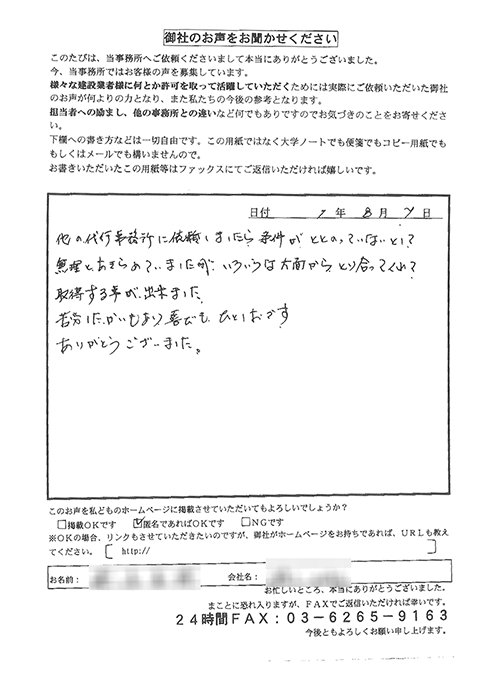 御社のお声をお聞かせください
このたびは、当事務所へご依頼くださいまして本当にありがとうございました。
今、当事務所ではお客様の声を募集しています。
様々な建設業者様に何とか許可を取って活躍していただくためには実際にご依頼いただいた御社
のお声が何よりの力となり、また私たちの今後の参考となります。
担当者への励まし、他の事務所との違いなど何でもありですのでお気づきのことをお寄せくださ
い。
下欄への書き方などは一切自由です。この用紙ではなく大学ノートでも便箋でもコピー用紙でも
もしくはメールでも構いませんので。
お書きいただいたこの用紙等はファックスにてご返信いただければ嬉しいです。
日付 7年 8月 7日
他の代行事務所に依頼しましたら条件がととのっていないと
無理とあきらめていましたが、いろいろな方面からとり合ってくれ
取得する事が出来ました
苦労したかいもあり喜びもひとしおです
ありがとうございました。
このお声を私どものホームページに掲載させていただいてもよろしいでしょうか?
□掲載OKです ☑匿名であればOKです □NGです
※OKの場合、リンクもさせていただきたいのですが、御社がホームページをお持ちであれば、URLも教え
てください。〔 http:// 〕
お名前: 会社名:
お忙しいところ、本当にありがとうございました。
まことに恐れ入りますが、FAXでご返信いただければ幸いです。
24時間FAX:03-6265-9163
今後ともよろしくお願い申し上げます。